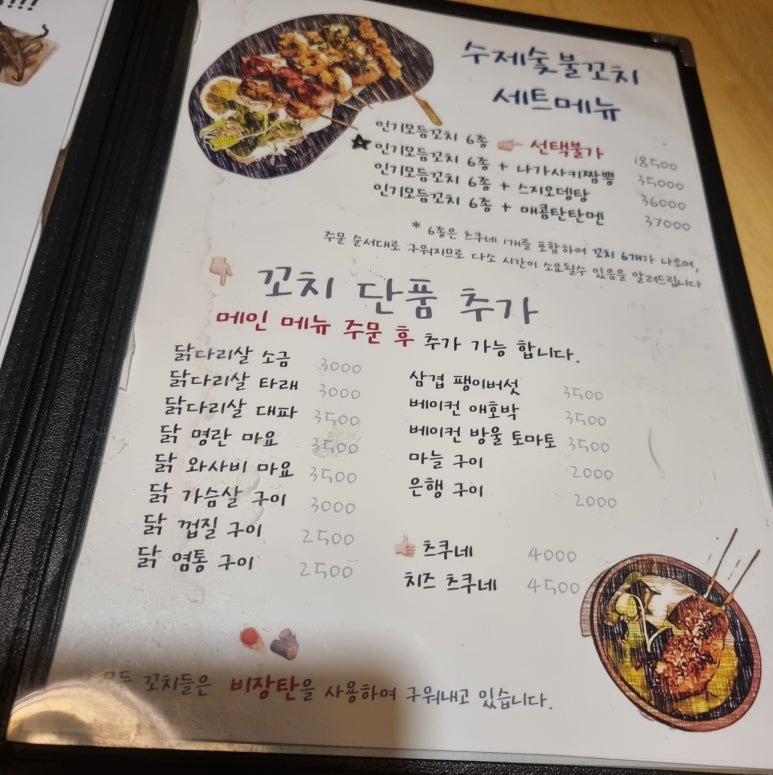 !!!
수제숯불꼬치
세트메뉴
인기모듬꼬치 6종 선택불가 18500
인기모듬꼬치 6종 + 나가사키짬뽕 35000
인기모듬꼬치 6종 + 스지오뎅탕 36000
인기모듬꼬치 6종 + 매콤탄탄멘 37000
* 6종은 츠쿠네 1개를 포함하여 꼬치 6개가 나오며,
주문 순서대로 구워지므로 다소 시간이 소요될수 있음을 알려드립니다
꼬치 단품 추가
메인 메뉴 주문 후 추가 가능 합니다.
닭다리살 소금 3000
닭다리살 타래 3000
닭다리살 대파 3500
닭 명란 마요 3500
닭 와사비 마요 3500
닭 가슴살 구이 3000
닭 껍질 구이 2500
닭 염통 구이 2500
삼겹 팽이버섯 3500
베이컨 애호박 3500
베이컨 방울 토마토 3500
마늘 구이 2000
은행 구이 2000
츠쿠네 4000
치즈 츠쿠네 4500
모든 꼬치들은 비장탄을 사용하여 구워내고 있습니다.